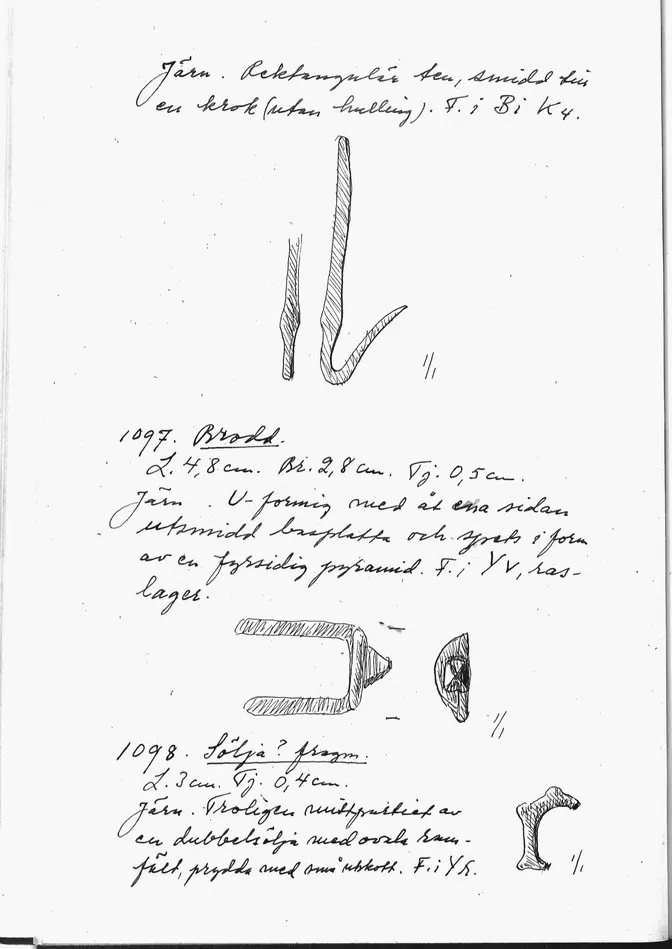 Järn. Rektangulär ten, smidd till
en krok (utan hulling). F. i Bi K4.
1/1
1097. Brodd.
L. 4,8 cm. Br. 2,8 cm. Tj. 0,5 cm.
Järn. U-formig med åt ena sidan
utsmidd basplatta och spets i form
av en fyrsidig pyramid. F. i YV, ras-
lager.
1/1
1098. Sölja? fragm.
L. 3 cm. Tj. 0,4 cm.
Järn. Troligen mittpartiet av
en dubbelsölja med ovala ram-
fält, prydda med små utskott. F. i
1/1